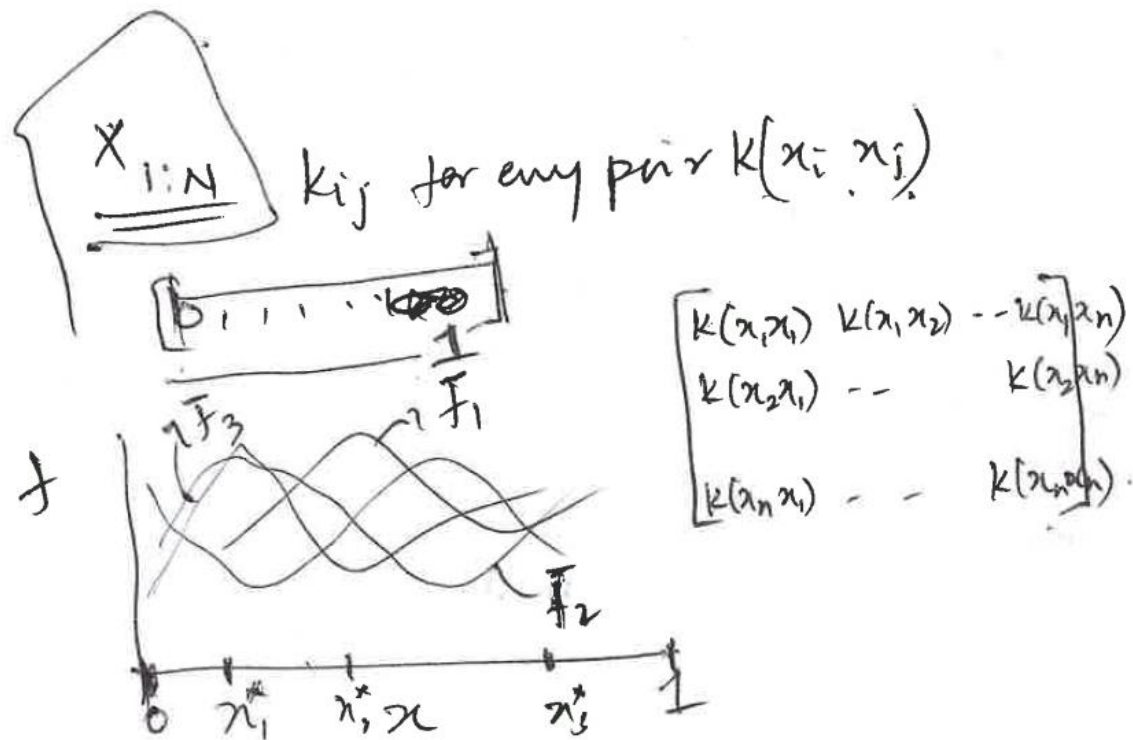 X 1:N
Kij for any pair K(xi xj)
0 1
K(x1 x1) K(x1 x2) -- K(x1 xn)
K(x2 x1) -- K(x2 xn)
K(xn x1) - - K(xn xn)
F3 F1
f
F2
0 x1* x2* x x3* 1